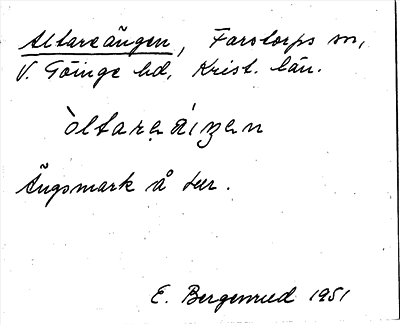 Altareängen, Farstorps sn,
V. Göinge hd, Krist. län.
àltaraáiŋan
Ängsmark å
E. Bergenrud 1951